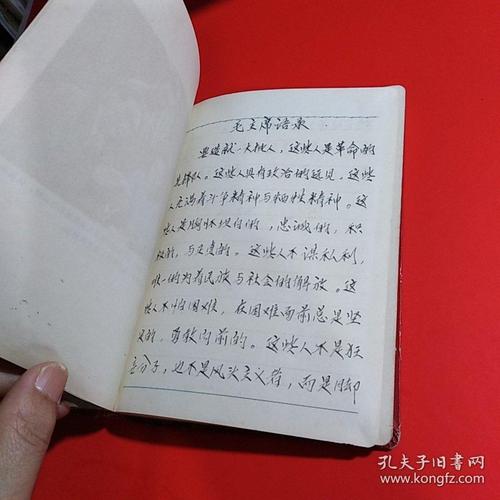 毛主席语录
要造就一大批人，这些人是革命的
先锋队。这些人具有政治的远见。这些
人充满着斗争精神与牺牲精神。这
些人是胸怀坦白的，忠诚的，积
极的，与正直的。这些人不谋私利，
唯一的为着民族与社会的解放。这
些人不怕困难，在困难面前总是坚
定的，勇敢向前的。这些人不是狂
妄分子，也不是风头主义者，而是脚
孔夫子旧书网
www.kongfz.com